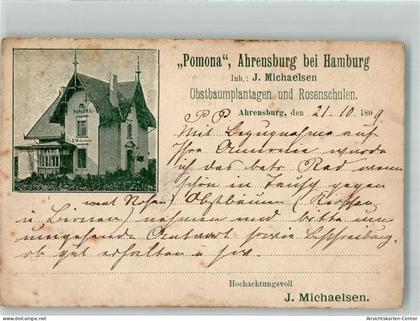 „Pomona“, Ahrensburg bei Hamburg
Inh.: J. Michaelsen
Obstbaumplantagen und Rosenschulen.
POMONA
J. Michaelsen
P. P. Ahrensburg, den 21. 10. 1899
Mit Bezugnahme auf
Ihre Annonce würde
ich das betr. Rad
schon in Tausch gegen
Obstbäumen (
u. Birnen) nehmen und bitte um
umgehende Antwort sowie Beschreibung,
ob gut erhalten u.
Hochachtungsvoll
J. Michaelsen.
www.ansichtskarten-center.de
Ansichtskarten-Center